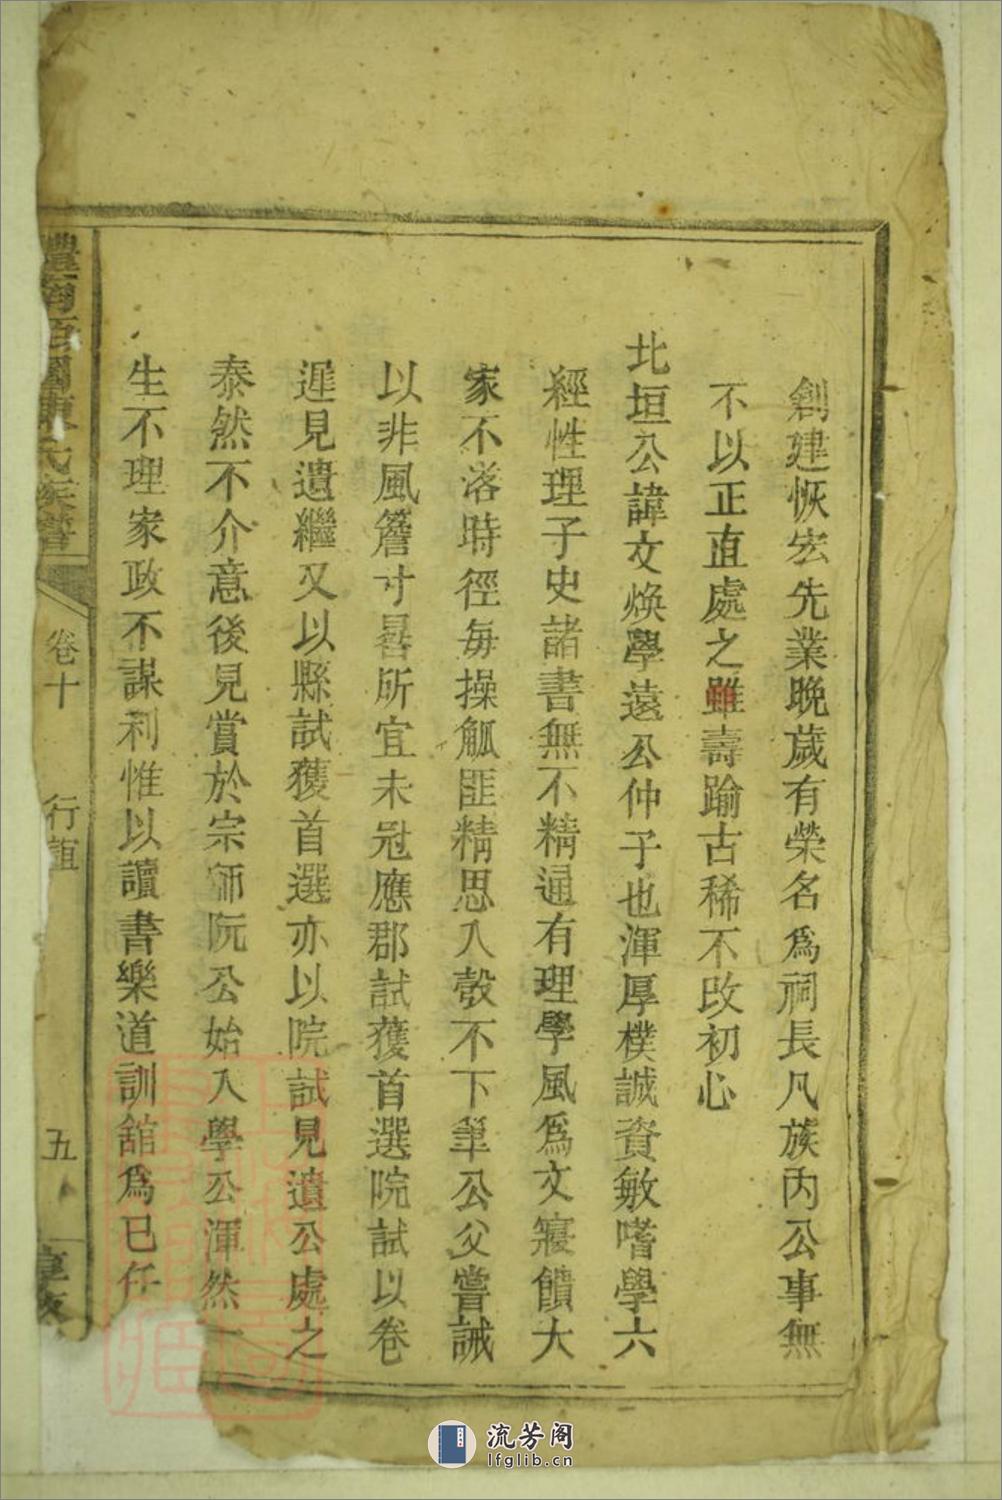 創建恢宏先業晚歲有榮名爲祠長凡族內公事無
不以正直處之雖壽踰古稀不改初心
北垣公諱文煥學遠公仲子也渾厚樸誠資敏嗜學六
經性理子史諸書無不精通有理學風爲文寢饋大
家不落時徑每操觚匪精思入彀不下筆公父嘗誡
以非風簷寸晷所宜未冠應郡試獲首選院試以卷
遲見遺繼又以縣試獲首選亦以院試見遺公處之
泰然不介意後見賞於宗師阮公始入學公渾然一
生不理家政不謀利惟以讀書樂道訓舘爲已任
陳氏族譜
卷十
行誼
五
流芳阁
lfglib.cn